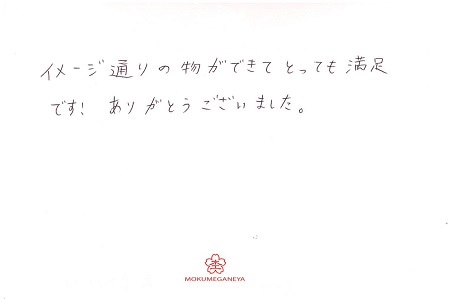 イメージ通りの物ができてとっても満足
です! ありがとうございました。
MOKUMEGANEYA